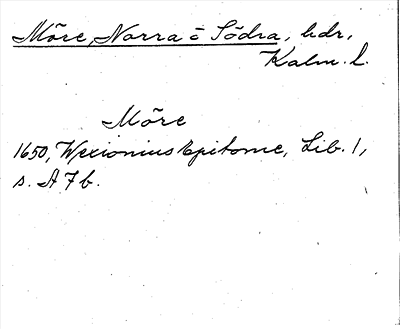 Möre, Norra o Södra, hdr,
Kalm. l.
Möre
1650, Wexionius Epitome, Lib. 1,
s. A 7 b.